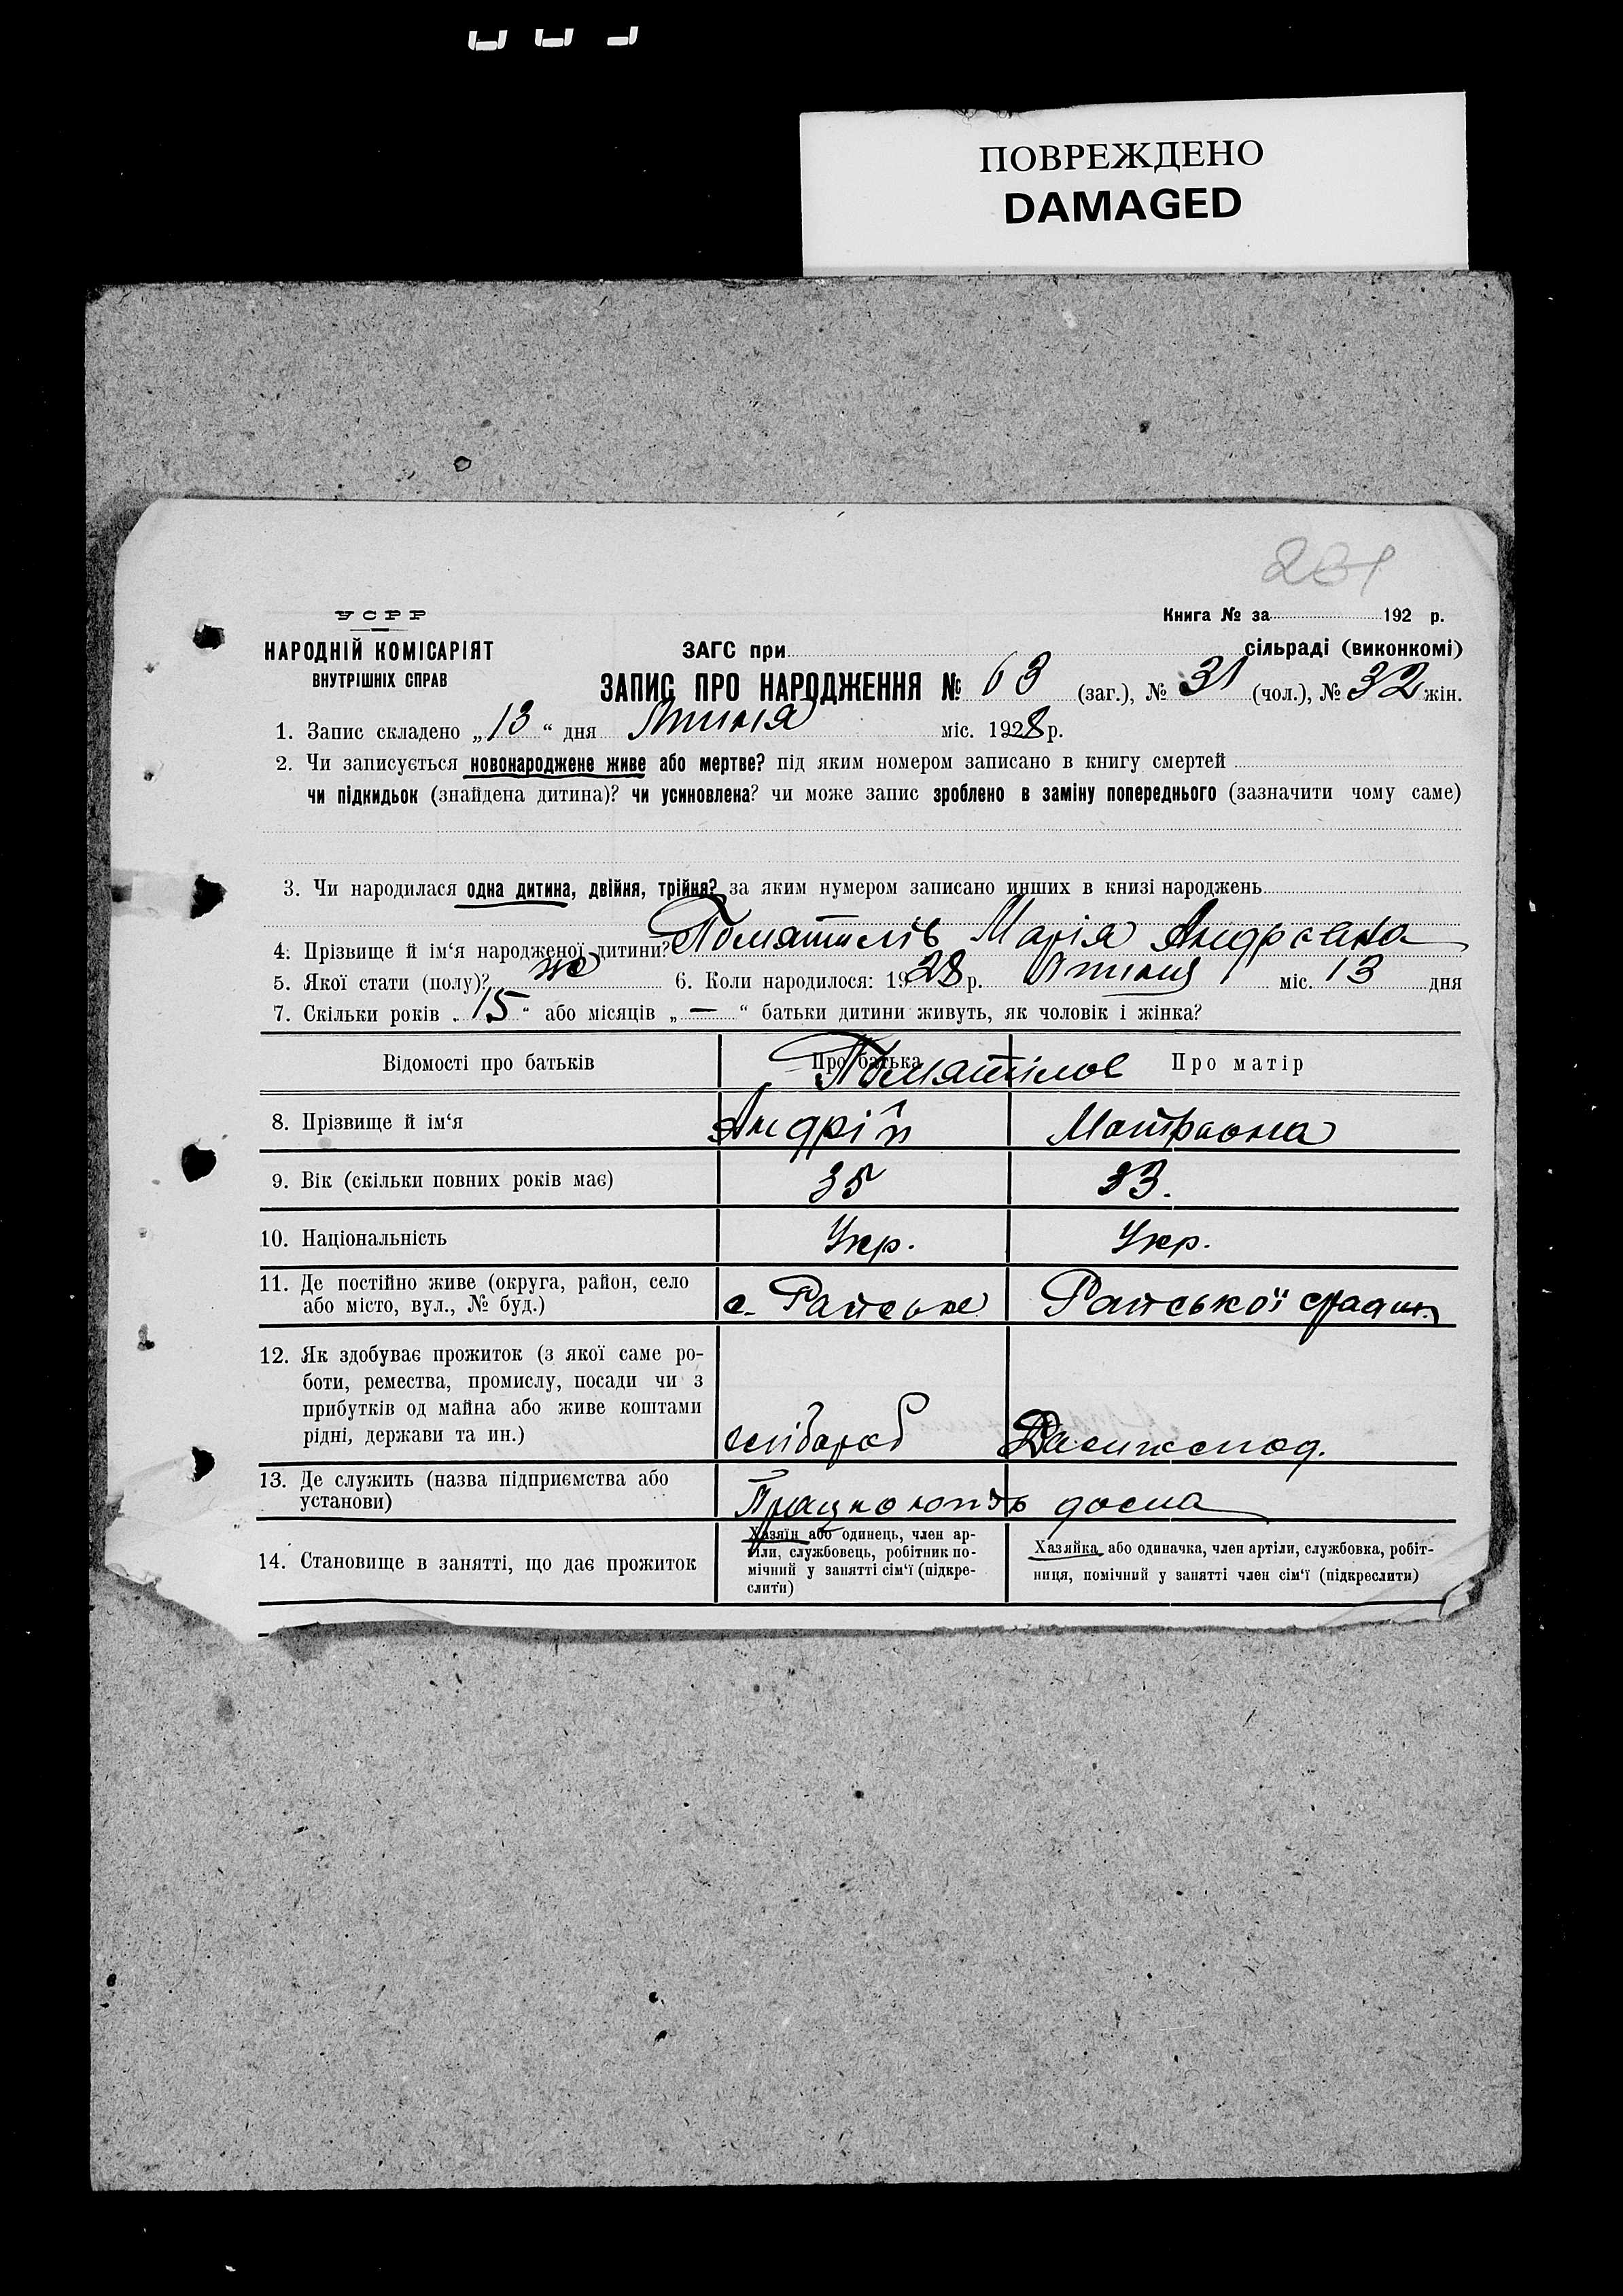 ПОВРЕЖДЕНО
DAMAGED
201
УСРР
Книга № за 192 р.
НАРОДНІЙ КОМІСАРІЯТ
ЗАГС при сільраді (виконкомі)
ВНУТРІШНІХ СПРАВ
ЗАПИС ПРО НАРОДЖЕННЯ № 63 (заг.), № 31 (чол.), № 32 жін.
1. Запис складено „13“ дня Липня міс. 1928 р.
2. Чи записується новонароджене живе або мертве? під яким номером записано в книгу смертей
чи підкидьок (знайдена дитина)? чи усиновлена? чи може запис зроблено в заміну попереднього (зазначити чому саме)
3. Чи народилася одна дитина, двійня, трійня? за яким нумером записано инших в книзі народжень
4. Прізвище й ім‘я народженої дитини? Марія Андреевна
5. Якої стати (полу)? жо 6. Коли народилося: 1928 р. Липня міс. 13 дня
7. Скільки років „15“ або місяців „—“ батьки дитини живуть, як чоловік і жінка?
Відомості про батьків Про батька Про матір
8. Прізвище й ім‘я Андрій Мотрона
9. Вік (скільки повних років має) 35 33.
10. Національність Укр. Укр.
11. Де постійно живе (округа, район, село
або місто, вул., № буд.) с. Райське Райської с/ради
12. Як здобуває прожиток (з якої саме ро-
боти, ремества, промислу, посади чи з
прибутків од майна або живе коштами
рідні, держави та ин.) хлібороб Домохспод.
13. Де служить (назва підприємства або
установи) Працюють дома
14. Становище в занятті, що дає прожиток
Хазяїн або одинець, член ар-
тіли, службовець, робітник по-
мічний у занятті сім‘ї (підкре-
слити)
Хазяйка або одиначка, член артіли, службовка, робіт-
ниця, помічний у занятті член сім‘ї (підкреслити)